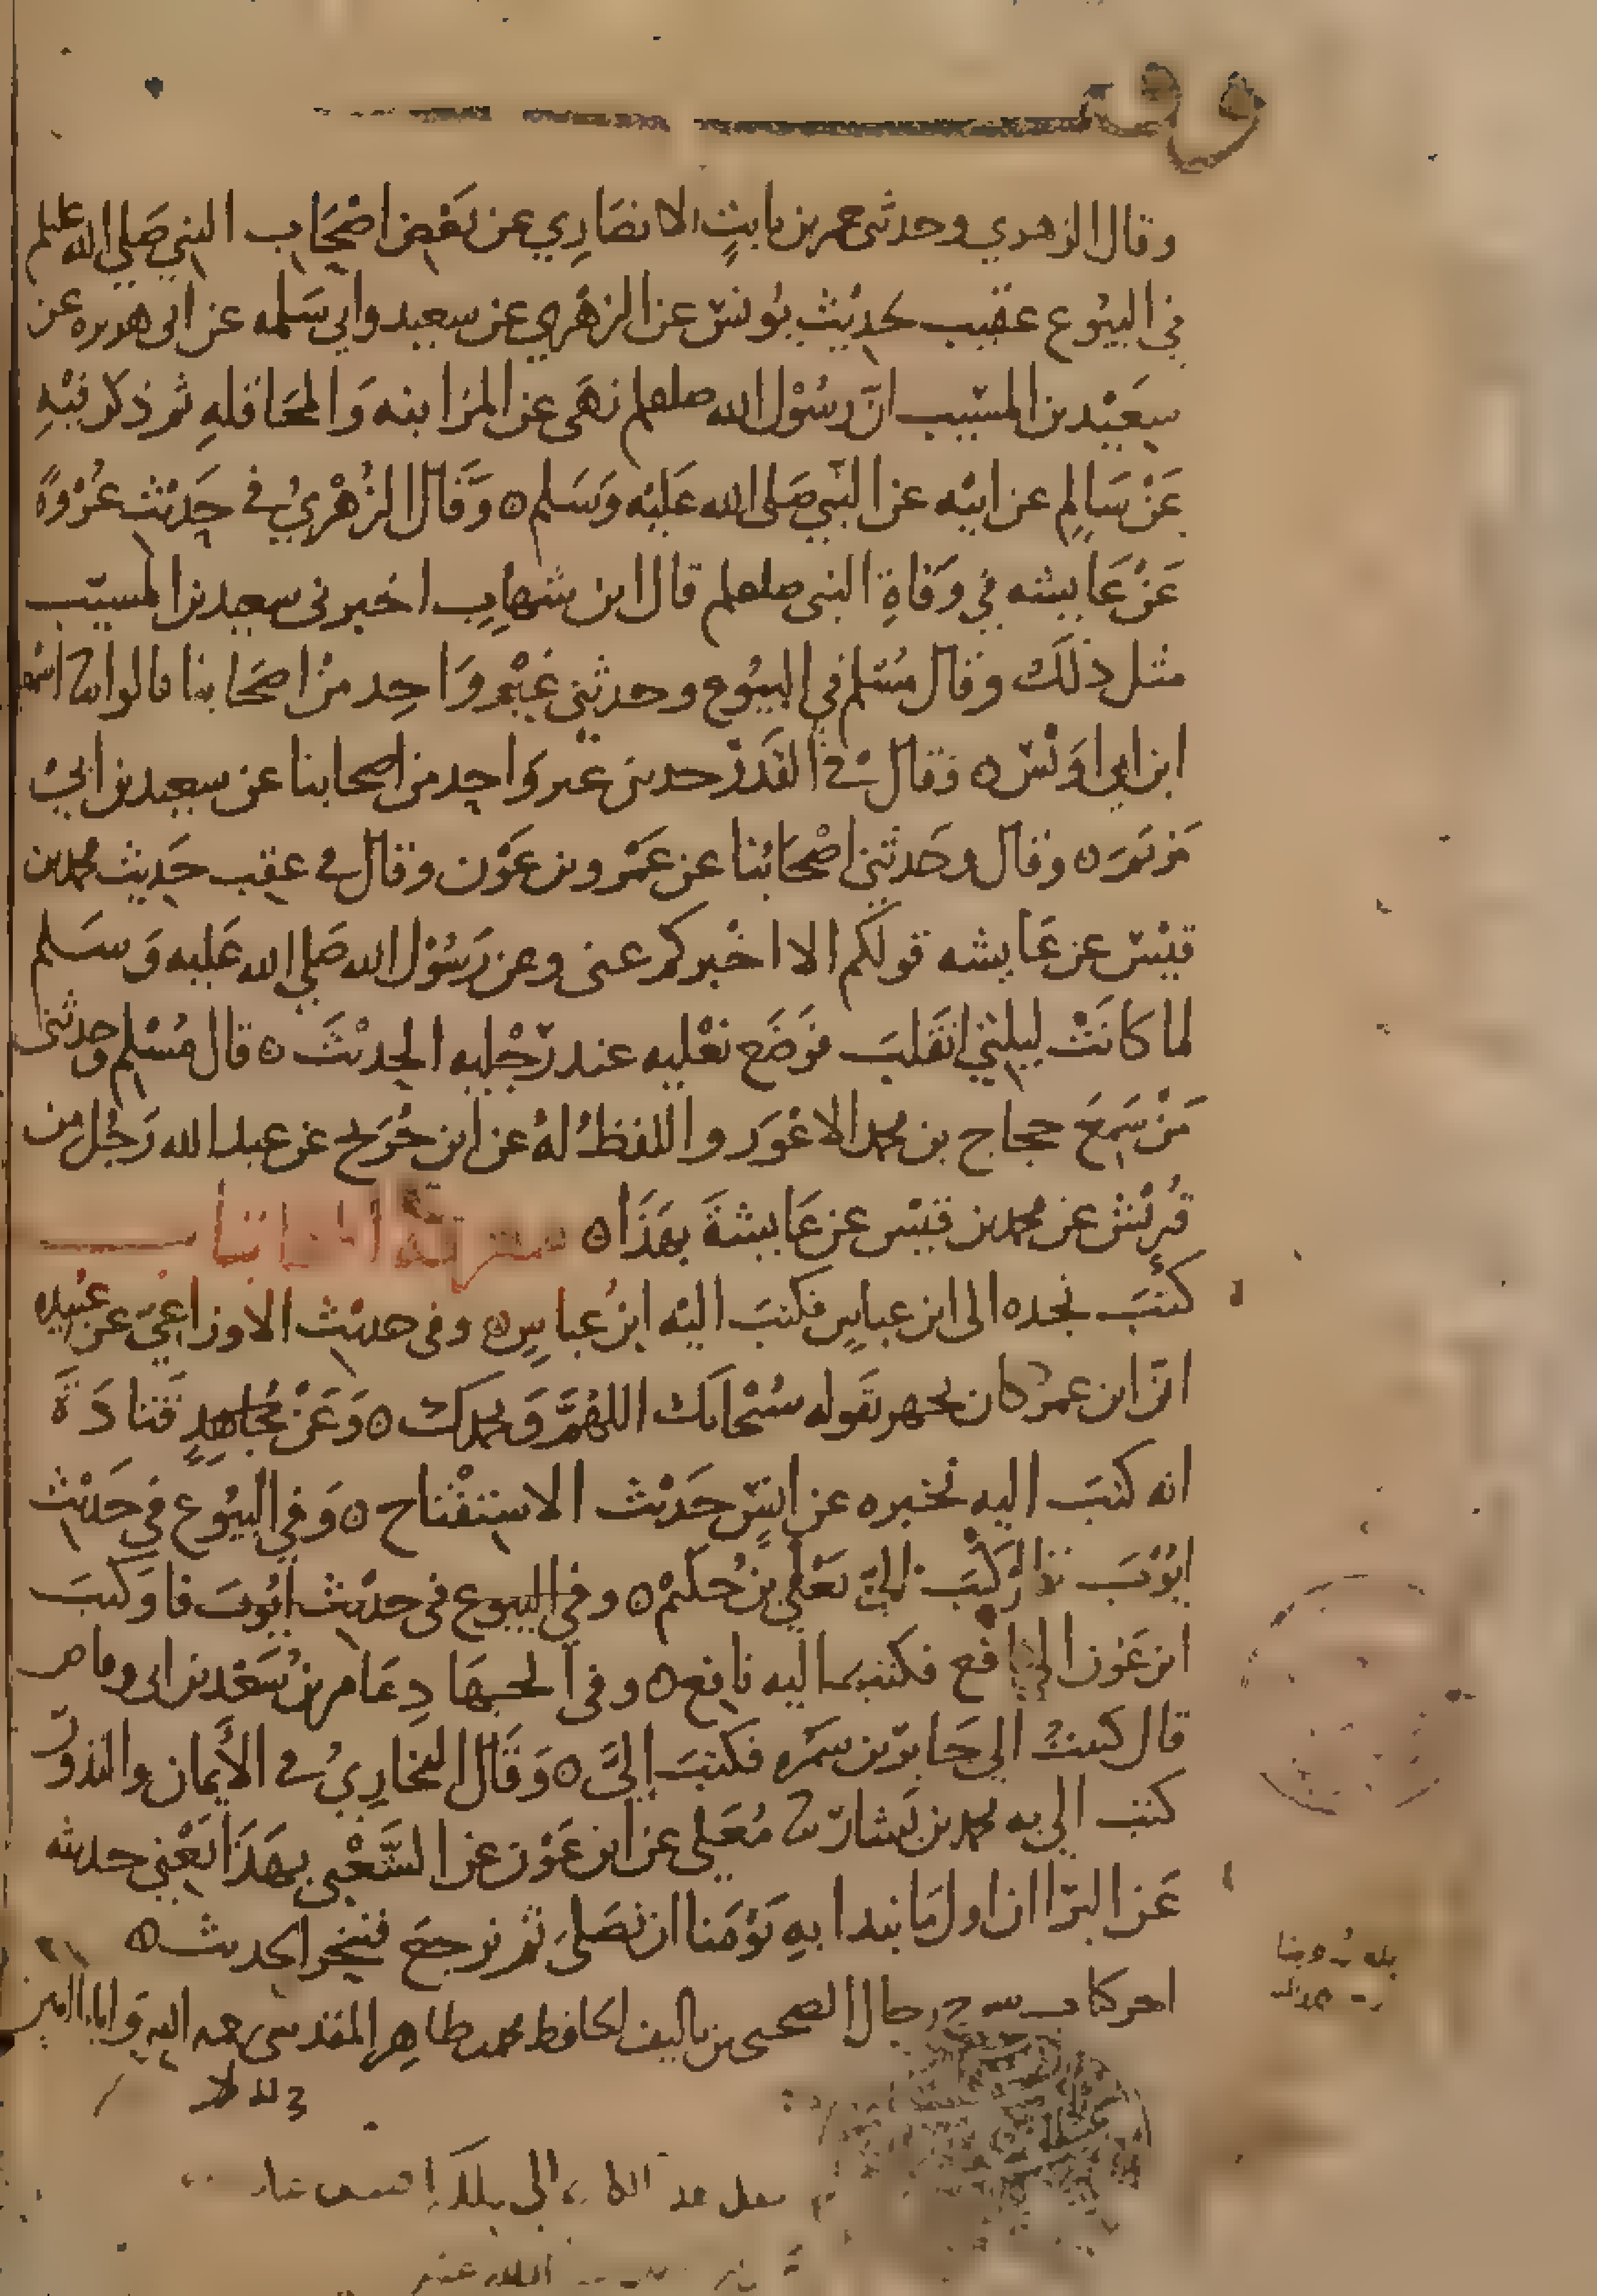 وقال الزهري وحدثني عمر بن ثابت الانصاري عن بعض اصحاب النبي صلى الله عليه وسلم
في البيوع عقيب حديث يونس عن الزهري عن سعيد وابي سلمه عن ابي هريره عن
سعيد بن المسيب ان رسول الله صلعم نهى عن المزابنه والمحاقله ثم ذكر فيه
عن سالم عن ابيه عن النبي صلى الله عليه وسلم ه وقال الزهري في حديث عروة
عن عايشه في وفاة النبي صلعم قال ابن شهاب اخبرني سعيد بن المسيب
مثل ذلك وقال مسلم في البيوع وحدثني غير واحد من اصحابنا قالوا ثنا اسمعيل
ابن ابي اويس ه وقال في القدر حدثني غير واحد من اصحابنا عن سعيد بن ابي
مريم ه وقال وحدثني اصحابنا عن عمرو بن عون وقال في عقب حديث محمد بن
قيس عن عايشه قولكم الا اخبركم عني وعن رسول الله صلي الله عليه وسلم
لما كانت ليلتي انقلب فوضع نعليه عند رجليه الحديث ه قال مسلم وحدثني
من سمع حجاج بن محمد الاعور واللفظ له عن ابن جريج عن عبد الله رجل من
قريش عن محمد بن قيس عن عايشة بهذا ه
كتب نجده الى ابن عباس فكتب اليه ابن عباس ه وفي حديث الاوزاعي عن عبيده
ان ابن عمر كان يجهر بقوله سبحانك اللهم وبحمدك ه وعن مجاهد قتادة
انه كتب اليه يخبره عن انس حديث الاستفتاح ه وفي البيوع في حديث
ايوب كتب الي يعلي بن حكيم ه وفي البيوع في حديث ايوب قا وكتب
ابن عون الي نافع فكتب اليه نافع ه وفي الجهاد عامر بن سعد بن ابي وقاص
قال كتبت الي جابر بن سمره فكتب إليّ ه وقال البخاري في الأيمان والنذور
كتب الي به محمد بن بشار ثنا معلي عن ابن عون عن الشعبي بهذا يعني حديثه
عن البرا ان اول ما نبدا به يومنا ان نصلي ثم نرجع فننحر الحديث ه
اخر كتاب رجال الصحيحين تاليف الحافظ محمد بن طاهر المقدسي رحمه الله وايانا امين